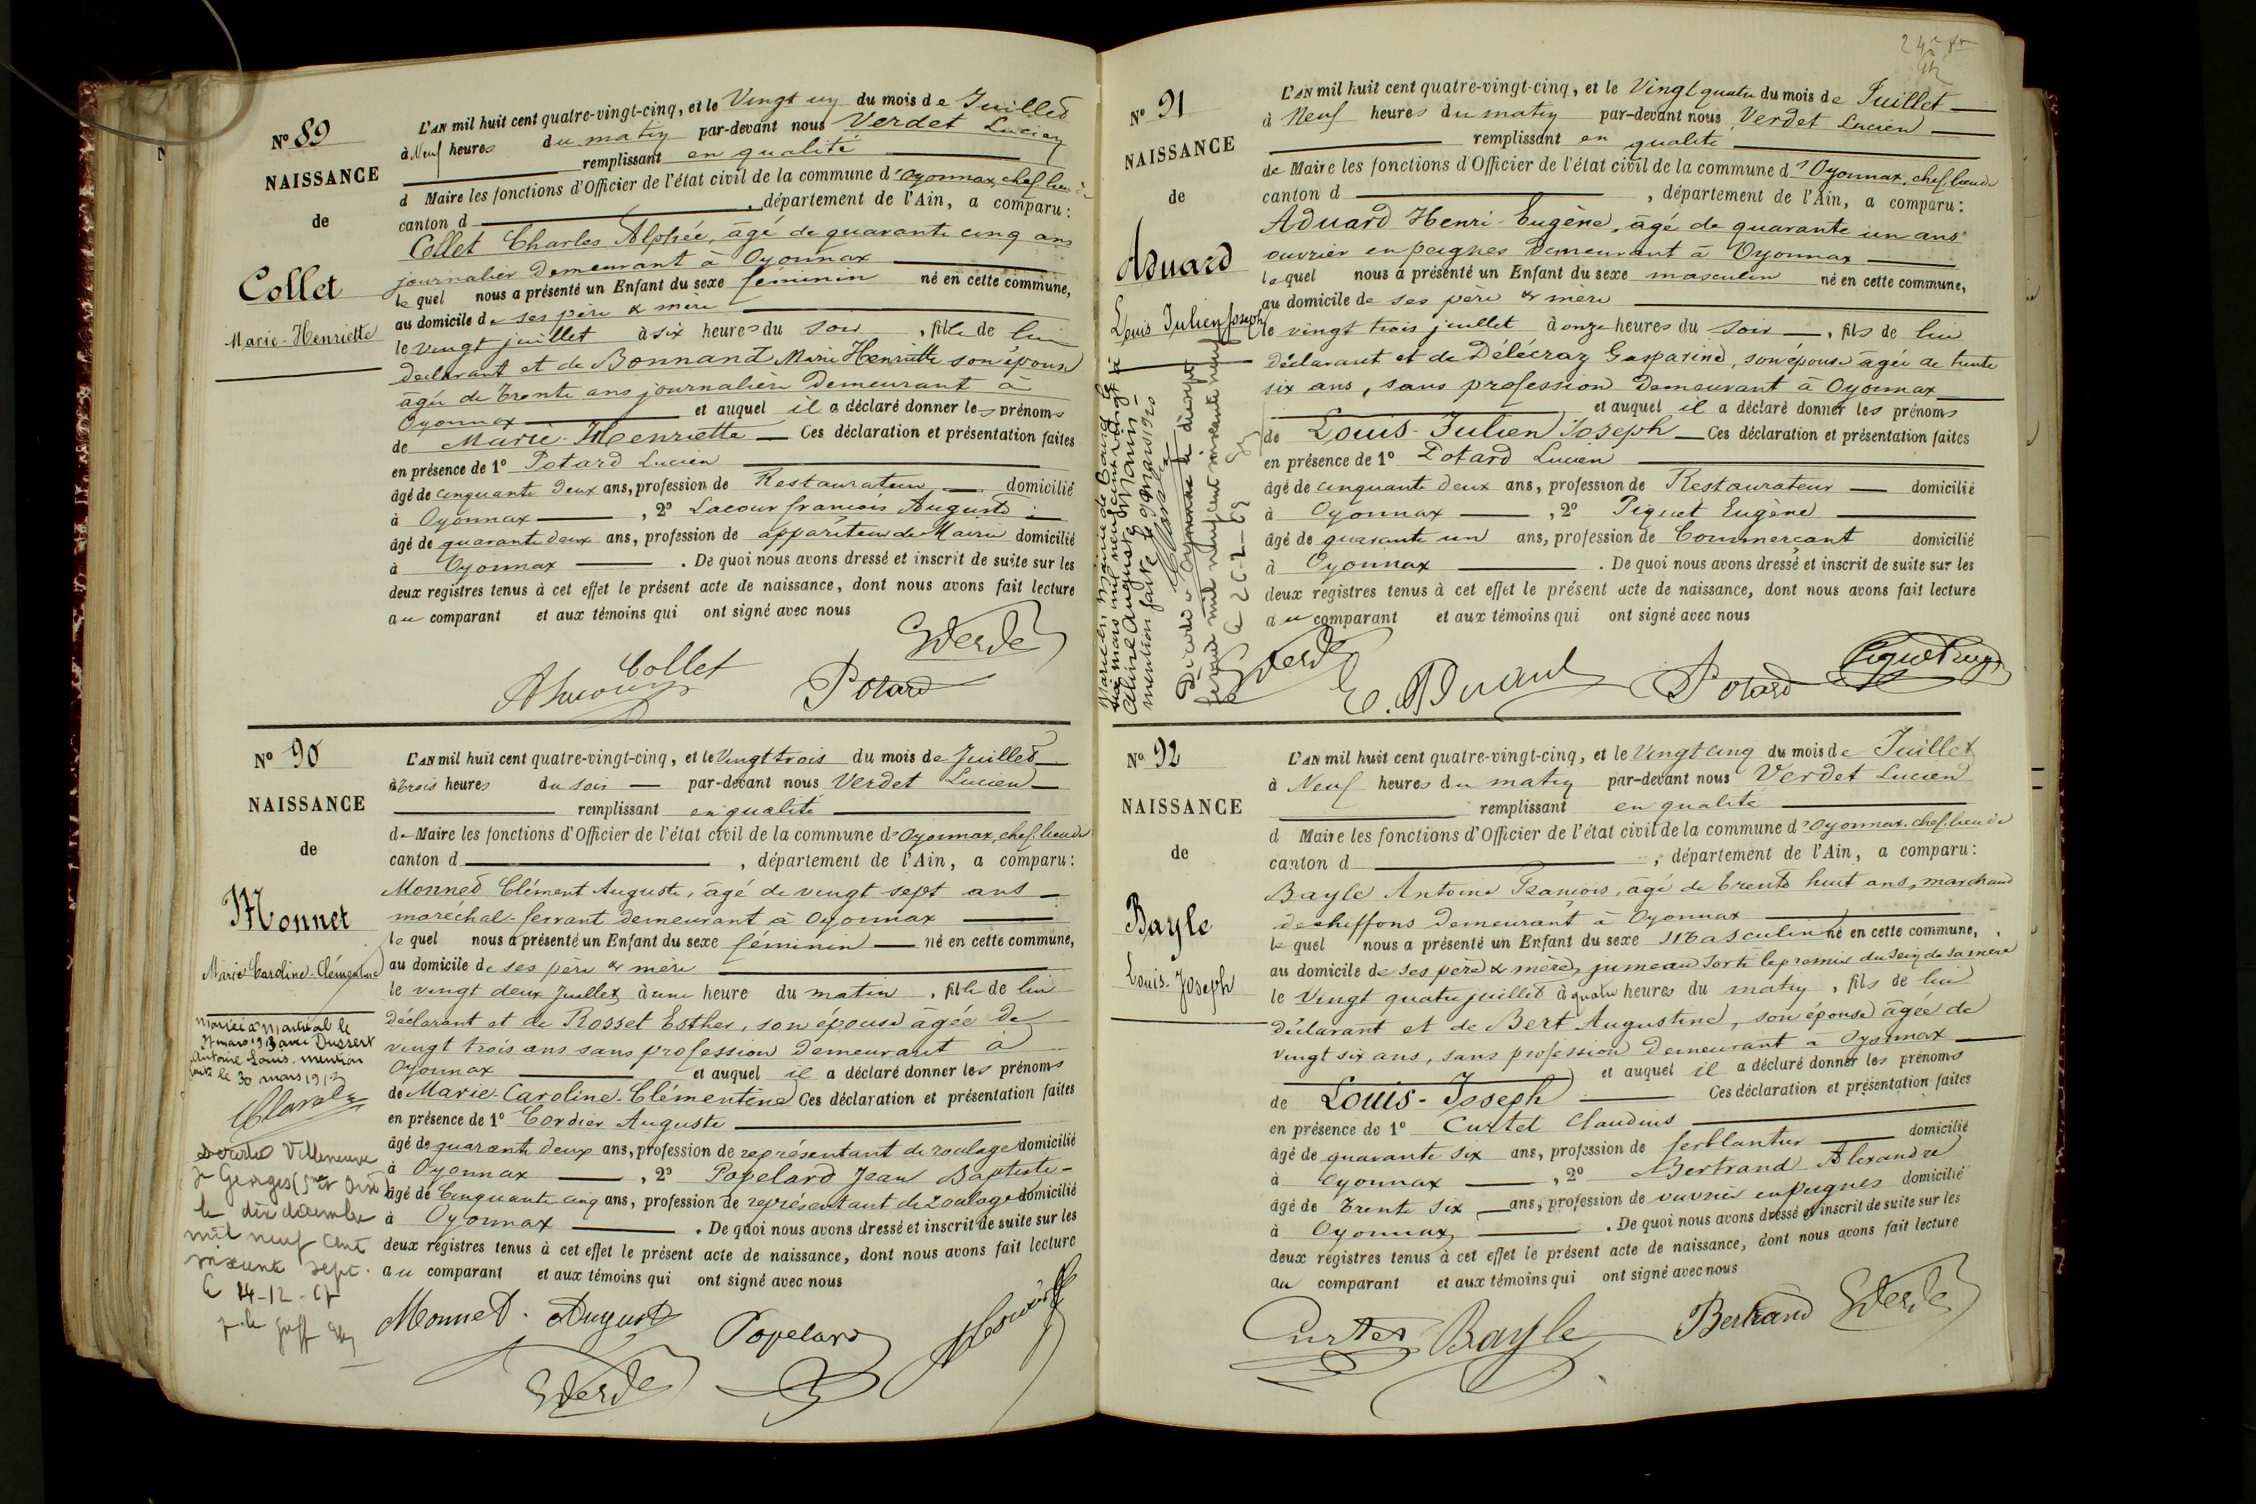 Nº 89
NAISSANCE
de
Collet
Marie-Henriette
L'AN mil huit cent quatre-vingt-cinq, et le Vingt un du mois de Juillet
à Neuf heures du matin par-devant nous Verdet Lucien
remplissant en qualité
d Maire les fonctions d'Officier de l'état civil de la commune d'Oyonnax, chef lieu de
canton d , département de l'Ain, a comparu:
Collet Charles Alphée, âgé de quarante cinq ans
journalier demeurant à Oyonnax
le quel nous a présenté un Enfant du sexe féminin né en cette commune,
au domicile de ses père & mère
le vingt juillet à six heures du soir, fille de lui
déclarant et de Bonnand Marie Henriette son épouse
âgée de trente ans journalière demeurant à
Oyonnax et auquel il a déclaré donner les prénoms
de Marie-Henriette Ces déclaration et présentation faites
en présence de 1º Potard Lucien
âgé de cinquante deux ans, profession de Restaurateur domicilié
à Oyonnax , 2º Lacour françois Auguste
âgé de quarante deux ans, profession de appariteur de Mairie domicilié
à Oyonnax . De quoi nous avons dressé et inscrit de suite sur les
deux registres tenus à cet effet le présent acte de naissance, dont nous avons fait lecture
au comparant et aux témoins qui ont signé avec nous
Verdet
Collet
ALacour Potard
Nº 90
NAISSANCE
de
Monnet
Marie-Caroline-Clémentine
Mariée à Martial le
mars 1913 avec Dussert
Antoine Louis. mention
faite le 30 mars 1913
décédée Villeneuve
St Georges (Sne et Oise)
le dix décembre
mil neuf cent
soixante sept.
L'AN mil huit cent quatre-vingt-cinq, et le Vingt trois du mois de Juillet
à trois heures du soir par-devant nous Verdet Lucien
remplissant en qualité
de Maire les fonctions d'Officier de l'état civil de la commune d'Oyonnax, chef lieu de
canton d , département de l'Ain, a comparu:
Monnet Clément Auguste, âgé de vingt sept ans
maréchal-ferrant demeurant à Oyonnax
le quel nous a présenté un Enfant du sexe féminin né en cette commune,
au domicile de ses père & mère
le vingt deux Juillet à une heure du matin, fille de lui
déclarant et de Rosset Esther, son épouse âgée de
vingt trois ans sans profession demeurant à
Oyonnax et auquel il a déclaré donner les prénoms
de Marie-Caroline-Clémentine Ces déclaration et présentation faites
en présence de 1º Cordier Auguste
âgé de quarante deux ans, profession de représentant de roulage domicilié
à Oyonnax , 2º Popelard Jean Baptiste
âgé de Cinquante cinq ans, profession de représentant de roulage domicilié
à Oyonnax . De quoi nous avons dressé et inscrit de suite sur les
deux registres tenus à cet effet le présent acte de naissance, dont nous avons fait lecture
au comparant et aux témoins qui ont signé avec nous
Monnet Auguste Popelard
Verdet
Nº 91
NAISSANCE
de
Aduard
Louis Julien Joseph
L'AN mil huit cent quatre-vingt-cinq, et le Vingt quatre du mois de Juillet
à Neuf heures du matin par-devant nous Verdet Lucien
remplissant en qualité
de Maire les fonctions d'Officier de l'état civil de la commune d'Oyonnax, chef lieu de
canton d , département de l'Ain, a comparu:
Aduard Henri-Eugène, âgé de quarante un ans
ouvrier en peignes demeurant à Oyonnax
le quel nous a présenté un Enfant du sexe masculin né en cette commune,
au domicile de ses père & mère
le vingt trois juillet à onze heures du soir, fils de lui
déclarant et de Délécraz Gasparine, son épouse âgée de trente
six ans, sans profession demeurant à Oyonnax
et auquel il a déclaré donner les prénoms
de Louis-Julien Joseph Ces déclaration et présentation faites
en présence de 1º Potard Lucien
âgé de cinquante deux ans, profession de Restaurateur domicilié
à Oyonnax , 2º Piquet Eugène
âgé de quarante un ans, profession de Commerçant domicilié
à Oyonnax . De quoi nous avons dressé et inscrit de suite sur les
deux registres tenus à cet effet le présent acte de naissance, dont nous avons fait lecture
au comparant et aux témoins qui ont signé avec nous
Verdet E. Aduard Potard
Nº 92
NAISSANCE
de
Bayle
Louis-Joseph
L'AN mil huit cent quatre-vingt-cinq, et le Vingt cinq du mois de Juillet
à Neuf heures du matin par-devant nous Verdet Lucien
remplissant en qualité
d Maire les fonctions d'Officier de l'état civil de la commune d'Oyonnax, chef lieu de
canton d , département de l'Ain, a comparu:
Bayle Antoine François, âgé de trente huit ans, marchand
de chiffons demeurant à Oyonnax
le quel nous a présenté un Enfant du sexe masculin né en cette commune,
au domicile de ses père & mère, jumeau sorti le premier du sein de sa mère
le Vingt quatre juillet à quatre heures du matin, fils de lui
déclarant et de Bert Augustine, son épouse âgée de
vingt six ans, sans profession demeurant à Oyonnax
et auquel il a déclaré donner les prénoms
de Louis-Joseph Ces déclaration et présentation faites
en présence de 1º Curtet Claudius
âgé de quarante six ans, profession de ferblantier domicilié
à Oyonnax , 2º Bertrand Alexandre
âgé de Trente six ans, profession de ouvrier en peignes domicilié
à Oyonnax . De quoi nous avons dressé et inscrit de suite sur les
deux registres tenus à cet effet le présent acte de naissance, dont nous avons fait lecture
au comparant et aux témoins qui ont signé avec nous
Curtet Bayle Bertrand Verdet